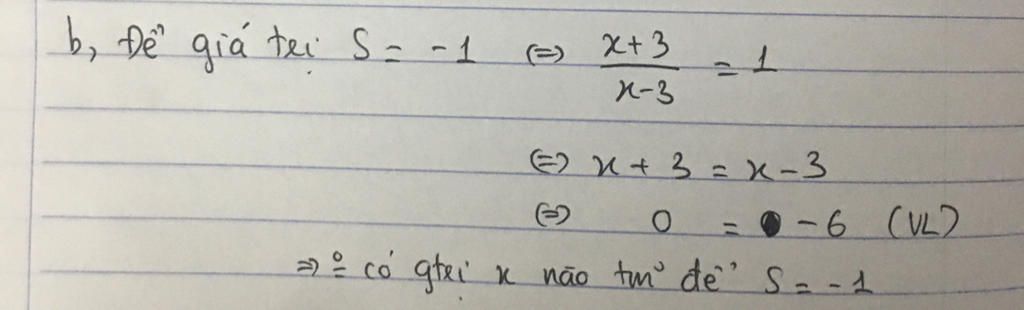 b, Để giá trị S = -1 (=) x+3/x-3 = 1
(=) x + 3 = x - 3
(=) 0 = -6 (VL)
=> có gtrị x nào tm để S = -1